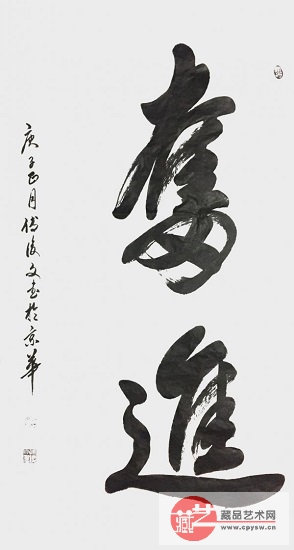 奮進
庚子正月傅文書於京華
藏艺
藏品艺术网
www.cpysw.cn